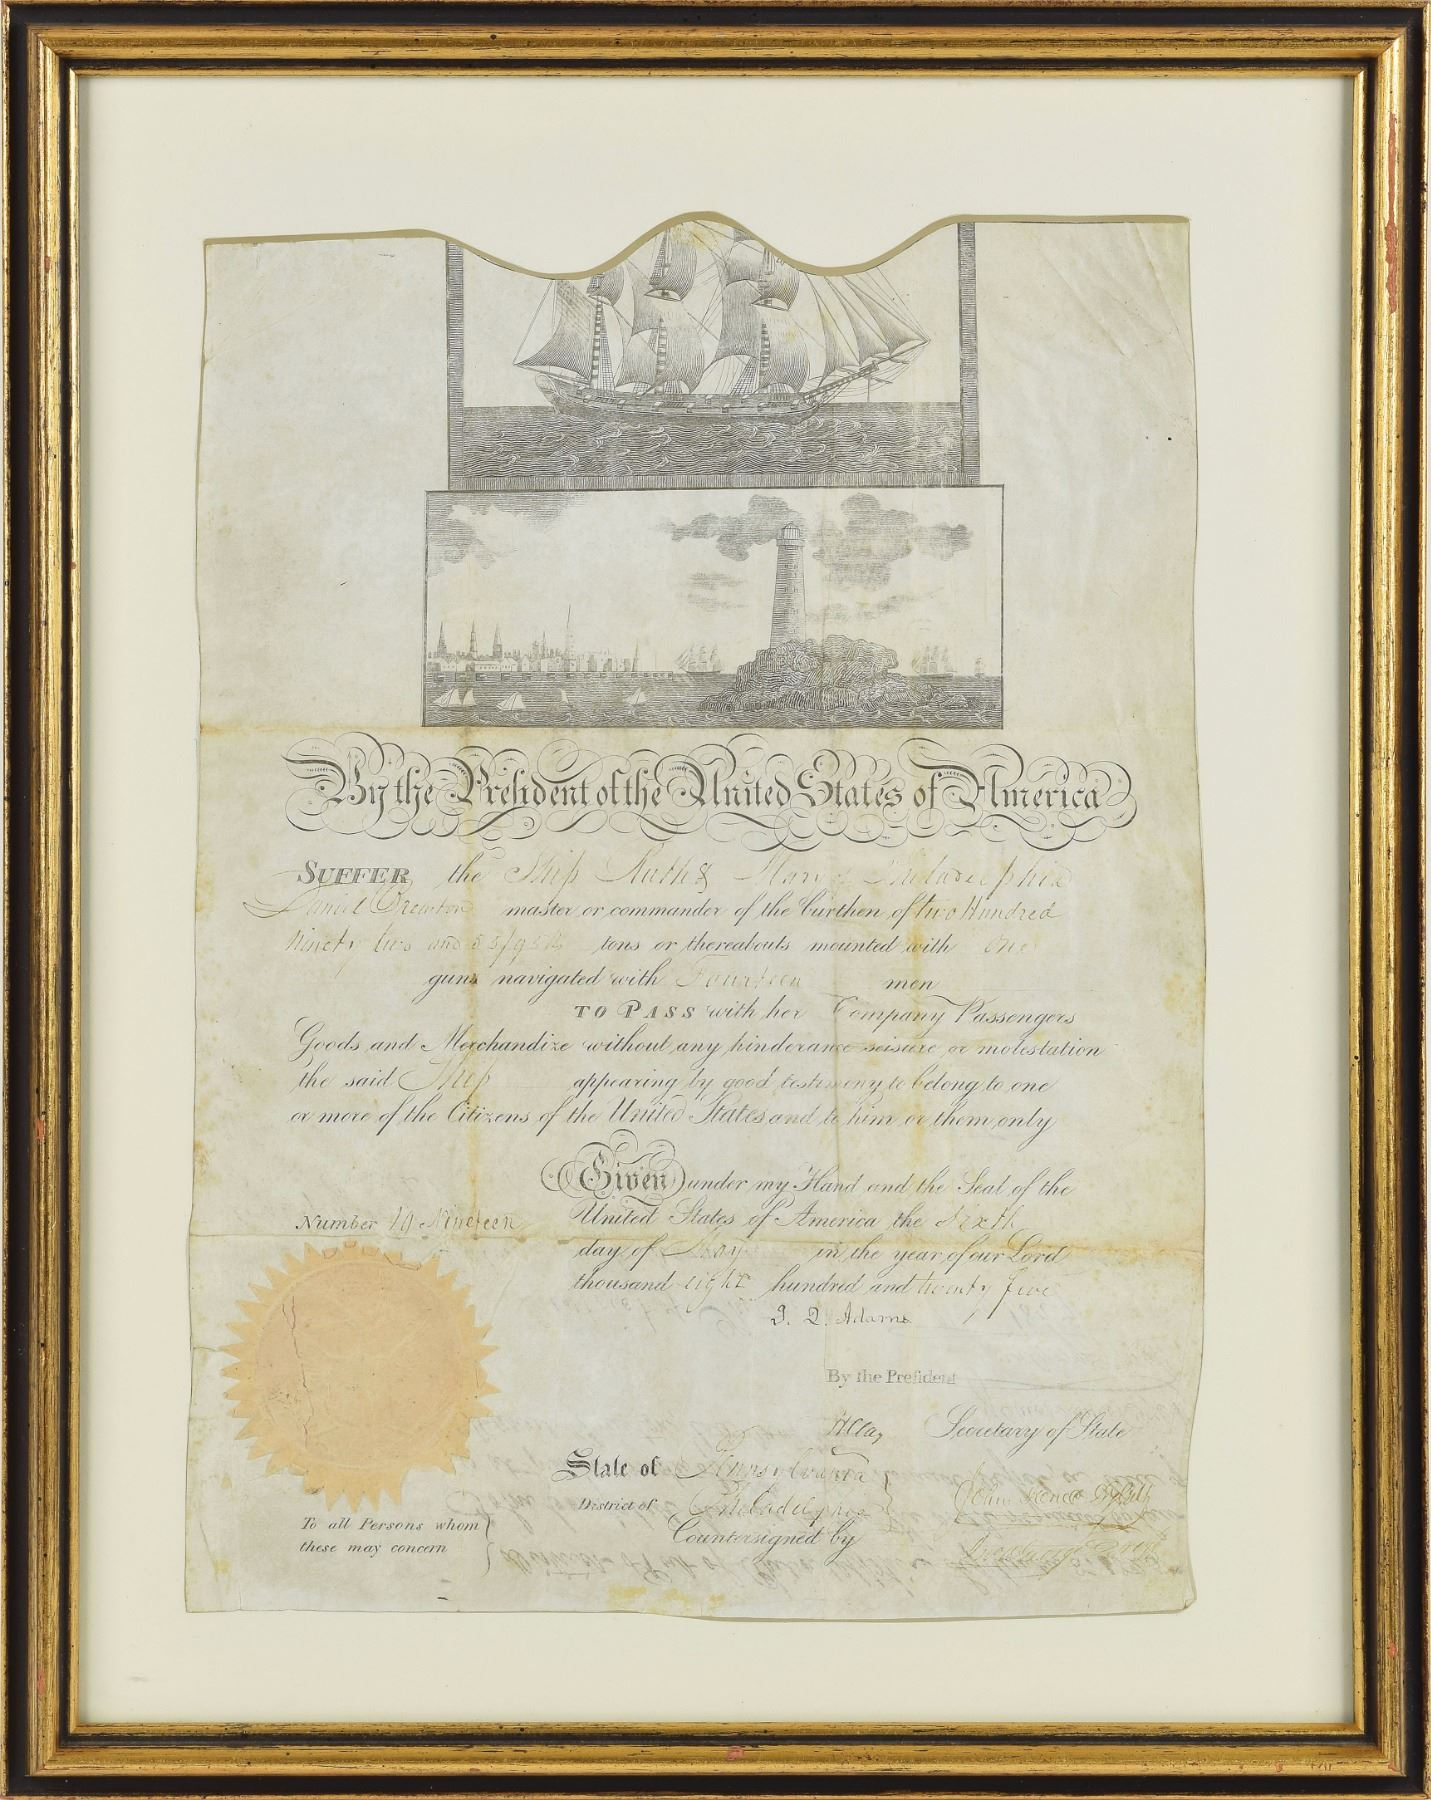 By the President of the United States of America
SUFFER the Ship Ruth & Mary of Philadelphia
Daniel Brewton master or commander of the burthen of two Hundred
Ninety two and 53/95th tons or thereabouts mounted with one
guns navigated with Fourteen men
TO PASS with her Company Passengers
Goods and Merchandize without any hinderance seisure or molestation
the said Ship appearing by good testimony to belong to one
or more of the Citizens of the United States and to him or them only
Given under my Hand and the Seal of the
Number 19 Nineteen United States of America the Sixth
day of May in the year of our Lord
thousand eight hundred and twenty five
J. Q. Adams
By the President
H Clay Secretary of State
State of Pennsylvania
District of Philadelphia
Countersigned by
To all Persons whom
these may concern